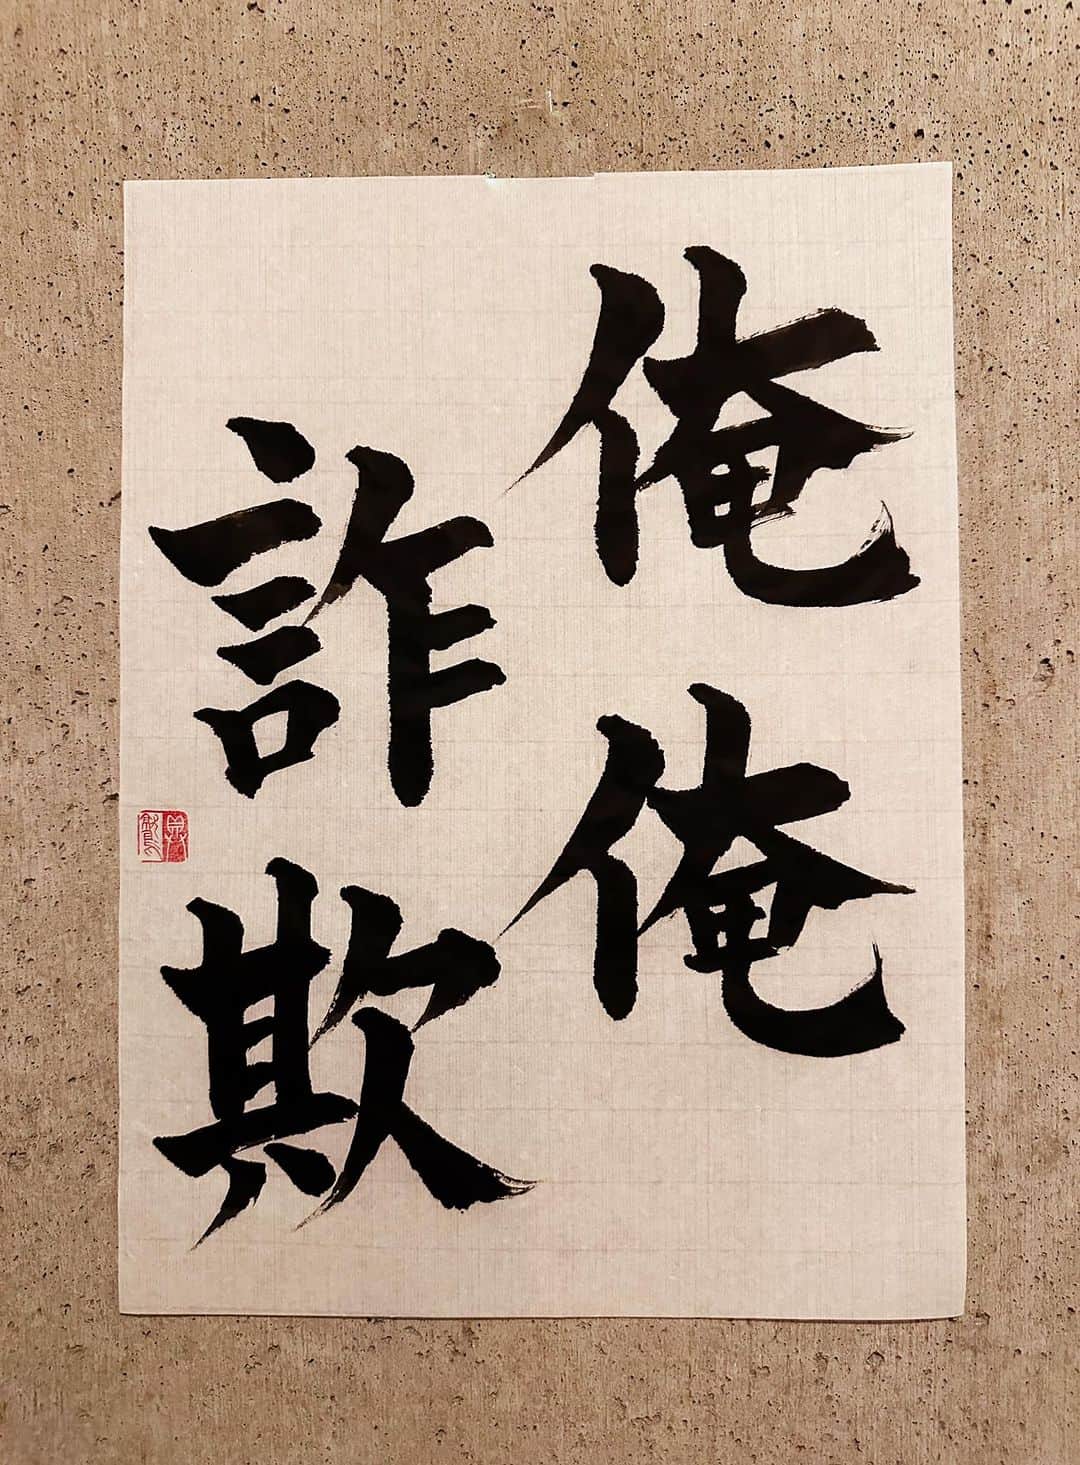 俺俺
詐欺